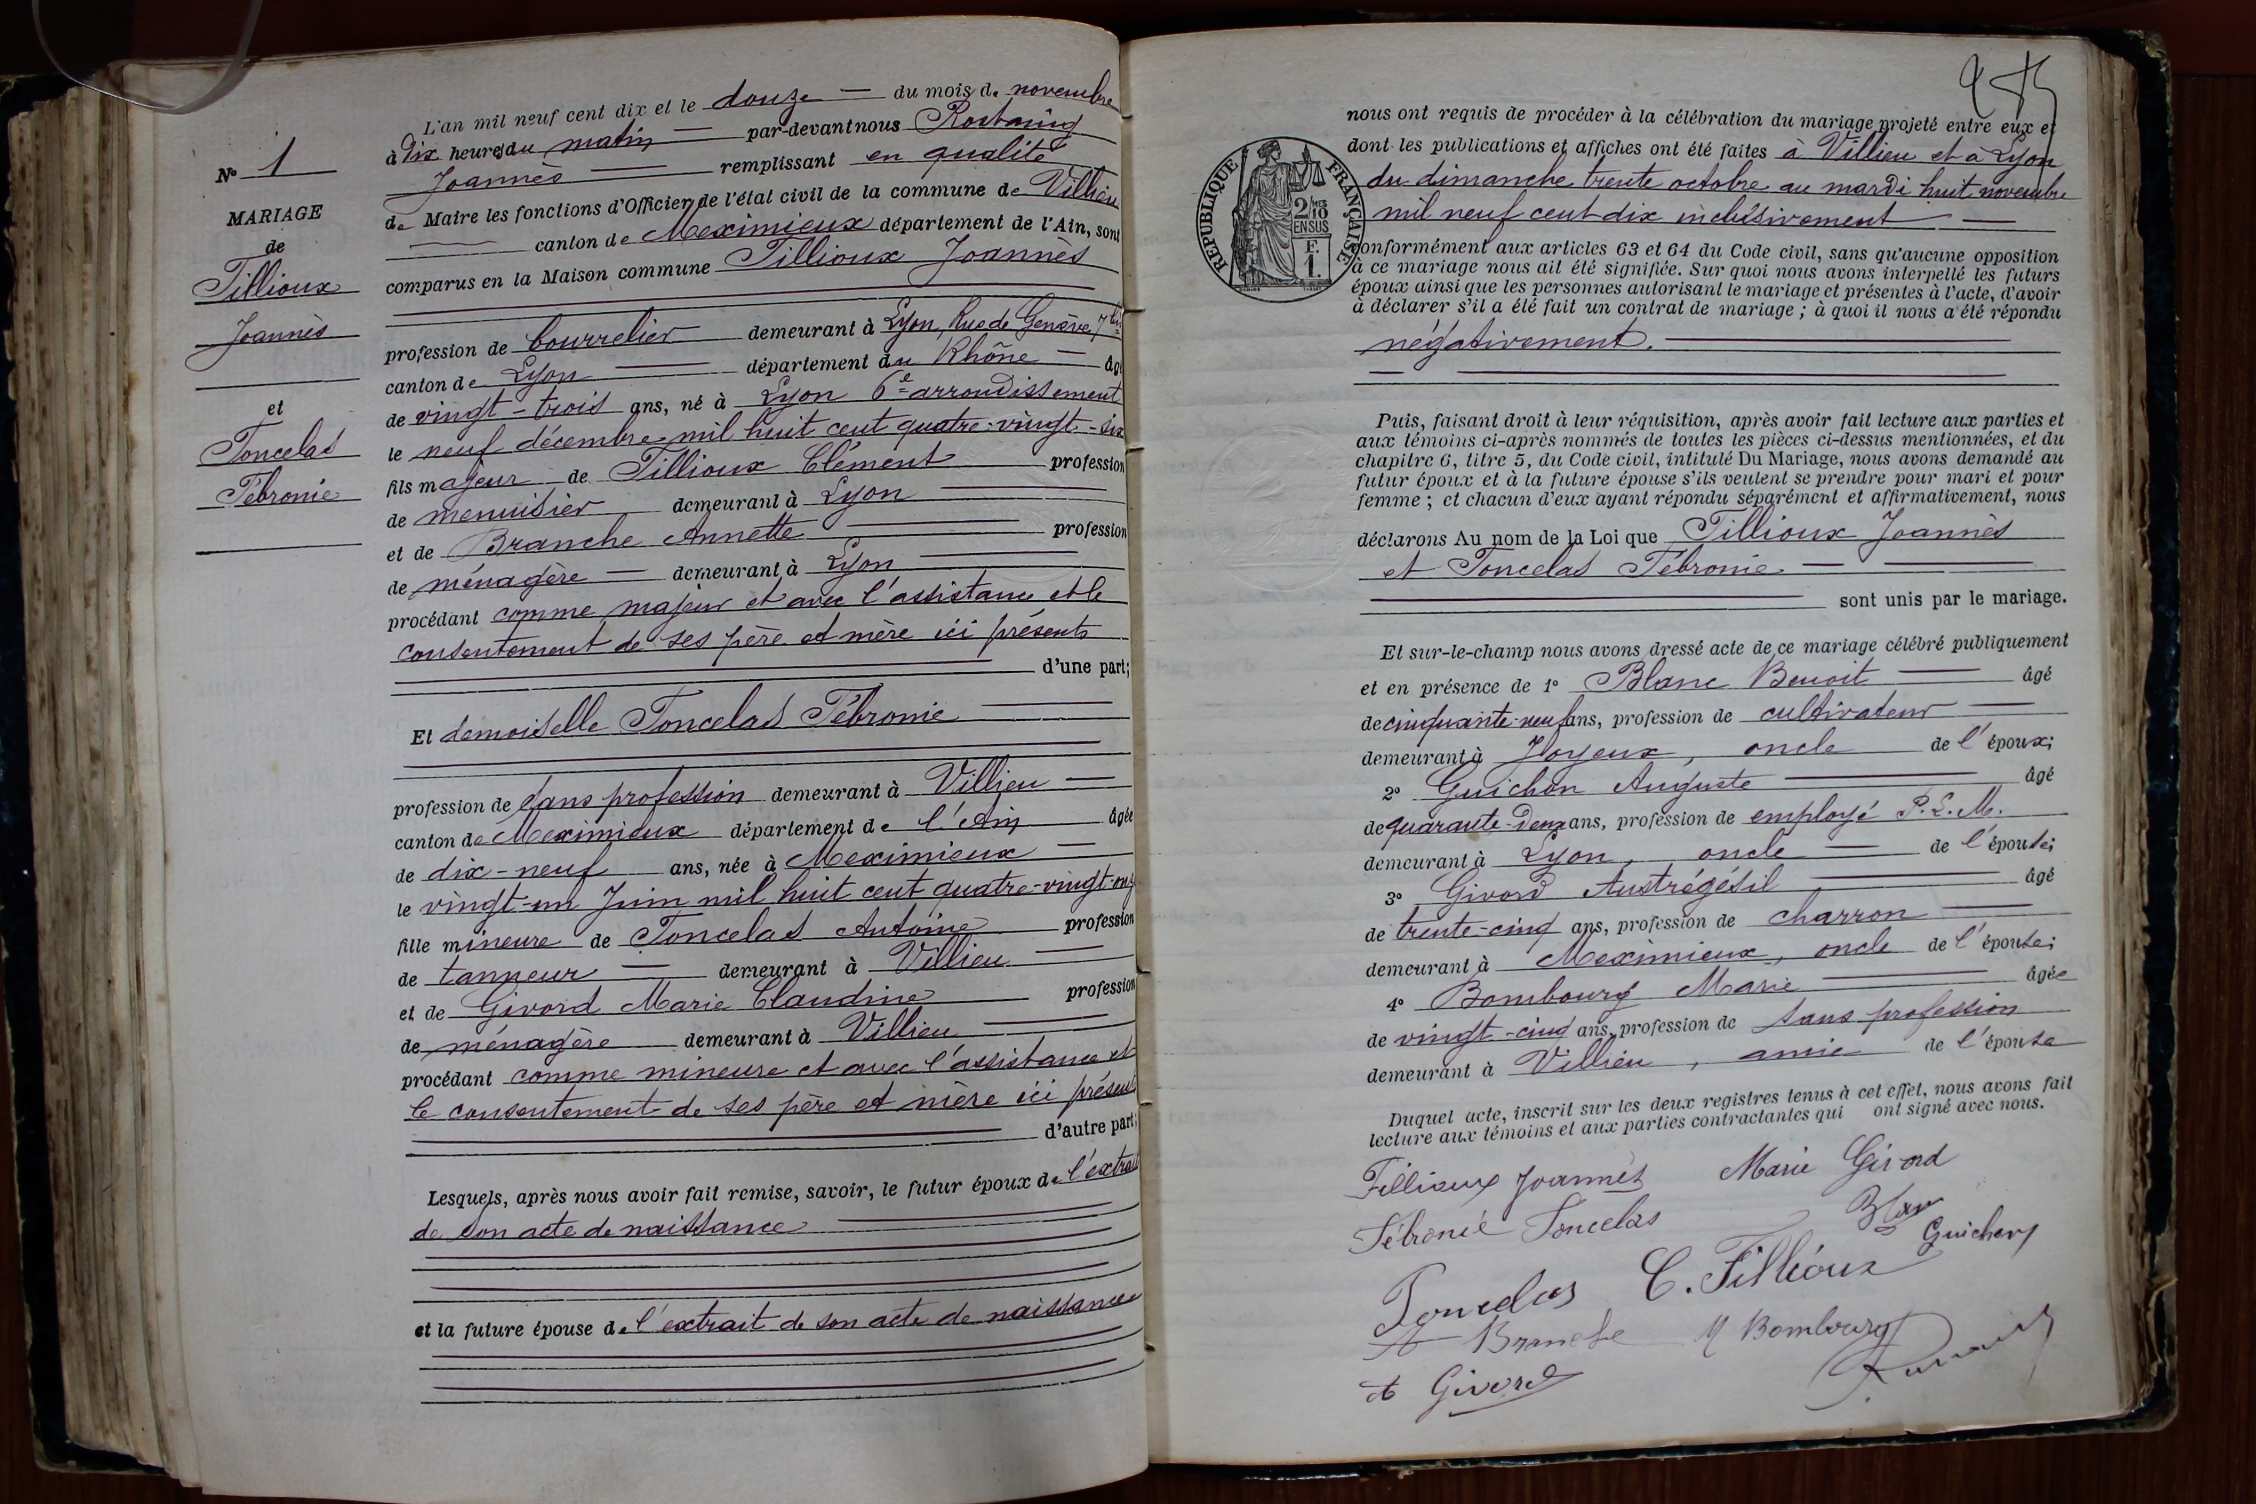 N° 1
MARIAGE
de
Fillioux
Joannès
et
Foncelas
Fébronie
L'an mil neuf cent dix et le douze du mois de novembre
à dix heures du matin par-devant nous Rostaing
Joannès remplissant en qualité
de Maire les fonctions d'Officier de l'état civil de la commune de Villieu
canton de Meximieux département de l'Ain, sont
comparus en la Maison commune Fillioux Joannès
profession de bourrelier demeurant à Lyon, Rue de Genève, 7 bis
canton de Lyon département du Rhône âgé
de vingt-trois ans, né à Lyon 6e arrondissement
le neuf décembre mil huit cent quatre-vingt-six
fils majeur de Fillioux Clément profession
de menuisier demeurant à Lyon
et de Branche Annette profession
de ménagère demeurant à Lyon
procédant comme majeur et avec l'assistance et le
consentement de ses père et mère ici présents
d'une part;
Et demoiselle Foncelas Fébronie
profession de sans profession demeurant à Villieu
canton de Meximieux département de l'Ain âgée
de dix-neuf ans, née à Meximieux
le vingt-un Juin mil huit cent quatre-vingt-onze
fille mineure de Foncelas Antoine profession
de tanneur demeurant à Villieu
et de Givord Marie Claudine profession
de ménagère demeurant à Villieu
procédant comme mineure et avec l'assistance et
le consentement de ses père et mère ici présents
d'autre part;
Lesquels, après nous avoir fait remise, savoir, le futur époux de l'extrait
de son acte de naissance
et la future épouse de l'extrait de son acte de naissance
RÉPUBLIQUE FRANÇAISE
2/10
EN SUS
F.
1.
nous ont requis de procéder à la célébration du mariage projeté entre eux et
dont les publications et affiches ont été faites à Villieu et à Lyon
du dimanche trente octobre au mardi huit novembre
mil neuf cent dix inclusivement
conformément aux articles 63 et 64 du Code civil, sans qu'aucune opposition
à ce mariage nous ait été signifiée. Sur quoi nous avons interpellé les futurs
époux ainsi que les personnes autorisant le mariage et présentes à l'acte, d'avoir
à déclarer s'il a été fait un contrat de mariage ; à quoi il nous a été répondu
négativement.
Puis, faisant droit à leur réquisition, après avoir fait lecture aux parties et
aux témoins ci-après nommés de toutes les pièces ci-dessus mentionnées, et du
chapitre 6, titre 5, du Code civil, intitulé Du Mariage, nous avons demandé au
futur époux et à la future épouse s'ils veulent se prendre pour mari et pour
femme ; et chacun d'eux ayant répondu séparément et affirmativement, nous
déclarons Au nom de la Loi que Fillioux Joannès
et Foncelas Fébronie
sont unis par le mariage.
Et sur-le-champ nous avons dressé acte de ce mariage célébré publiquement
et en présence de 1° Blanc Benoit âgé
de cinquante-neuf ans, profession de cultivateur
demeurant à Joyeux, oncle de l'époux;
2° Guichon Auguste âgé
de quarante-deux ans, profession de employé P.L.M.
demeurant à Lyon, oncle de l'épouse;
3° Givord Austrégésil âgé
de trente-cinq ans, profession de charron
demeurant à Meximieux, oncle de l'épouse;
4° Bombourg Marie âgée
de vingt-cinq ans, profession de sans profession
demeurant à Villieu, amie de l'épouse
Duquel acte, inscrit sur les deux registres tenus à cet effet, nous avons fait
lecture aux témoins et aux parties contractantes qui ont signé avec nous.
Fillioux Joannès Marie Givord
Fébronie Foncelas Blanc
Guichon
Foncelas C. Fillioux
A Branche M Bombourg
A Givord